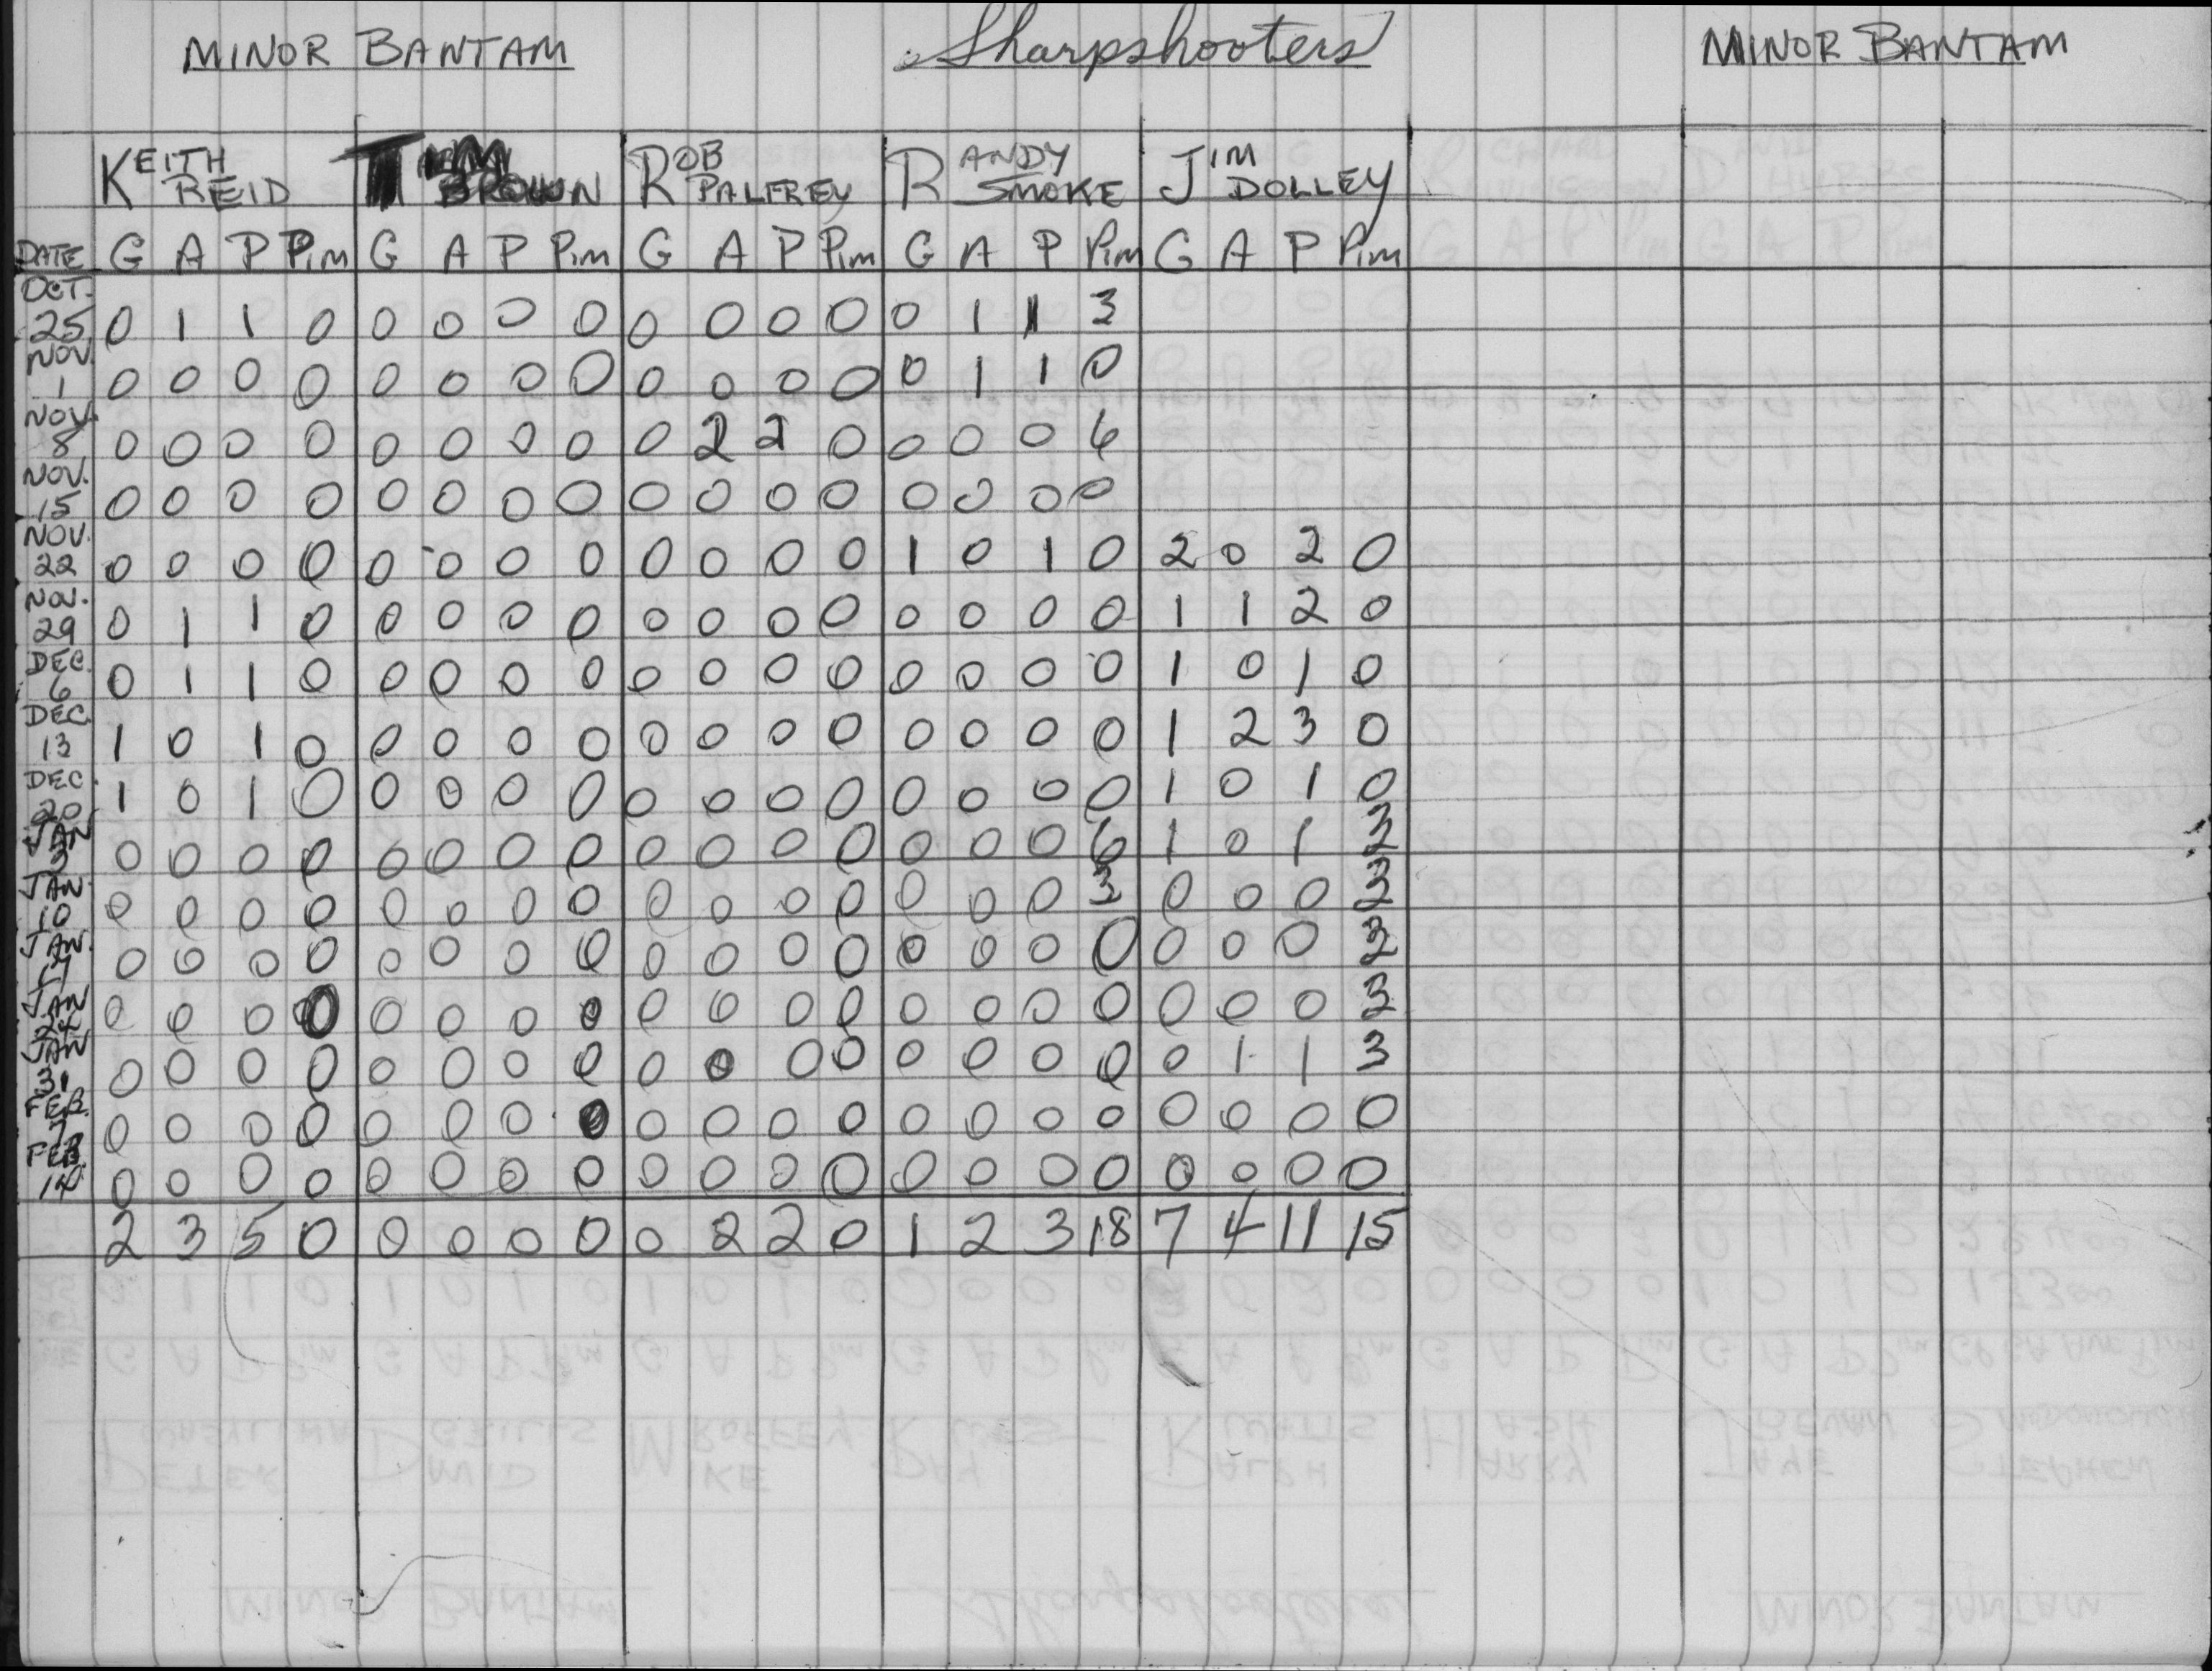 MINOR BANTAM Sharpshooters MINOR BANTAM
KEITH REID TIM BROWN ROB PALFREY RANDY SMOKE JIM DOLLEY
DATE G A P Pim G A P Pim G A P Pim G A P Pim G A P Pim
OCT. 25 0 1 1 0 0 0 0 0 0 0 0 0 0 1 1 3
NOV. 1 0 0 0 0 0 0 0 0 0 0 0 0 0 1 1 0
NOV. 8 0 0 0 0 0 0 0 0 0 2 2 0 0 0 0 6
NOV. 15 0 0 0 0 0 0 0 0 0 0 0 0 0 0 0 0
NOV. 22 0 0 0 0 0 0 0 0 0 0 0 0 1 0 1 0 2 0 2 0
NOV. 29 0 1 1 0 0 0 0 0 0 0 0 0 0 0 0 0 1 1 2 0
DEC. 6 0 1 1 0 0 0 0 0 0 0 0 0 0 0 0 0 1 0 1 0
DEC. 13 1 0 1 0 0 0 0 0 0 0 0 0 0 0 0 0 1 2 3 0
DEC. 20 1 0 1 0 0 0 0 0 0 0 0 0 0 0 0 0 1 0 1 0
JAN 3 0 0 0 0 0 0 0 0 0 0 0 0 0 0 0 6 1 0 1 3
JAN. 10 0 0 0 0 0 0 0 0 0 0 0 0 0 0 0 3 0 0 0 3
JAN. 17 0 0 0 0 0 0 0 0 0 0 0 0 0 0 0 0 0 0 0 3
JAN 24 0 0 0 0 0 0 0 0 0 0 0 0 0 0 0 0 0 0 0 3
JAN 31 0 0 0 0 0 0 0 0 0 0 0 0 0 0 0 0 0 1 1 3
FEB. 7 0 0 0 0 0 0 0 0 0 0 0 0 0 0 0 0 0 0 0 0
FEB. 14 0 0 0 0 0 0 0 0 0 0 0 0 0 0 0 0 0 0 0 0
2 3 5 0 0 0 0 0 0 2 2 0 1 2 3 18 7 4 11 15